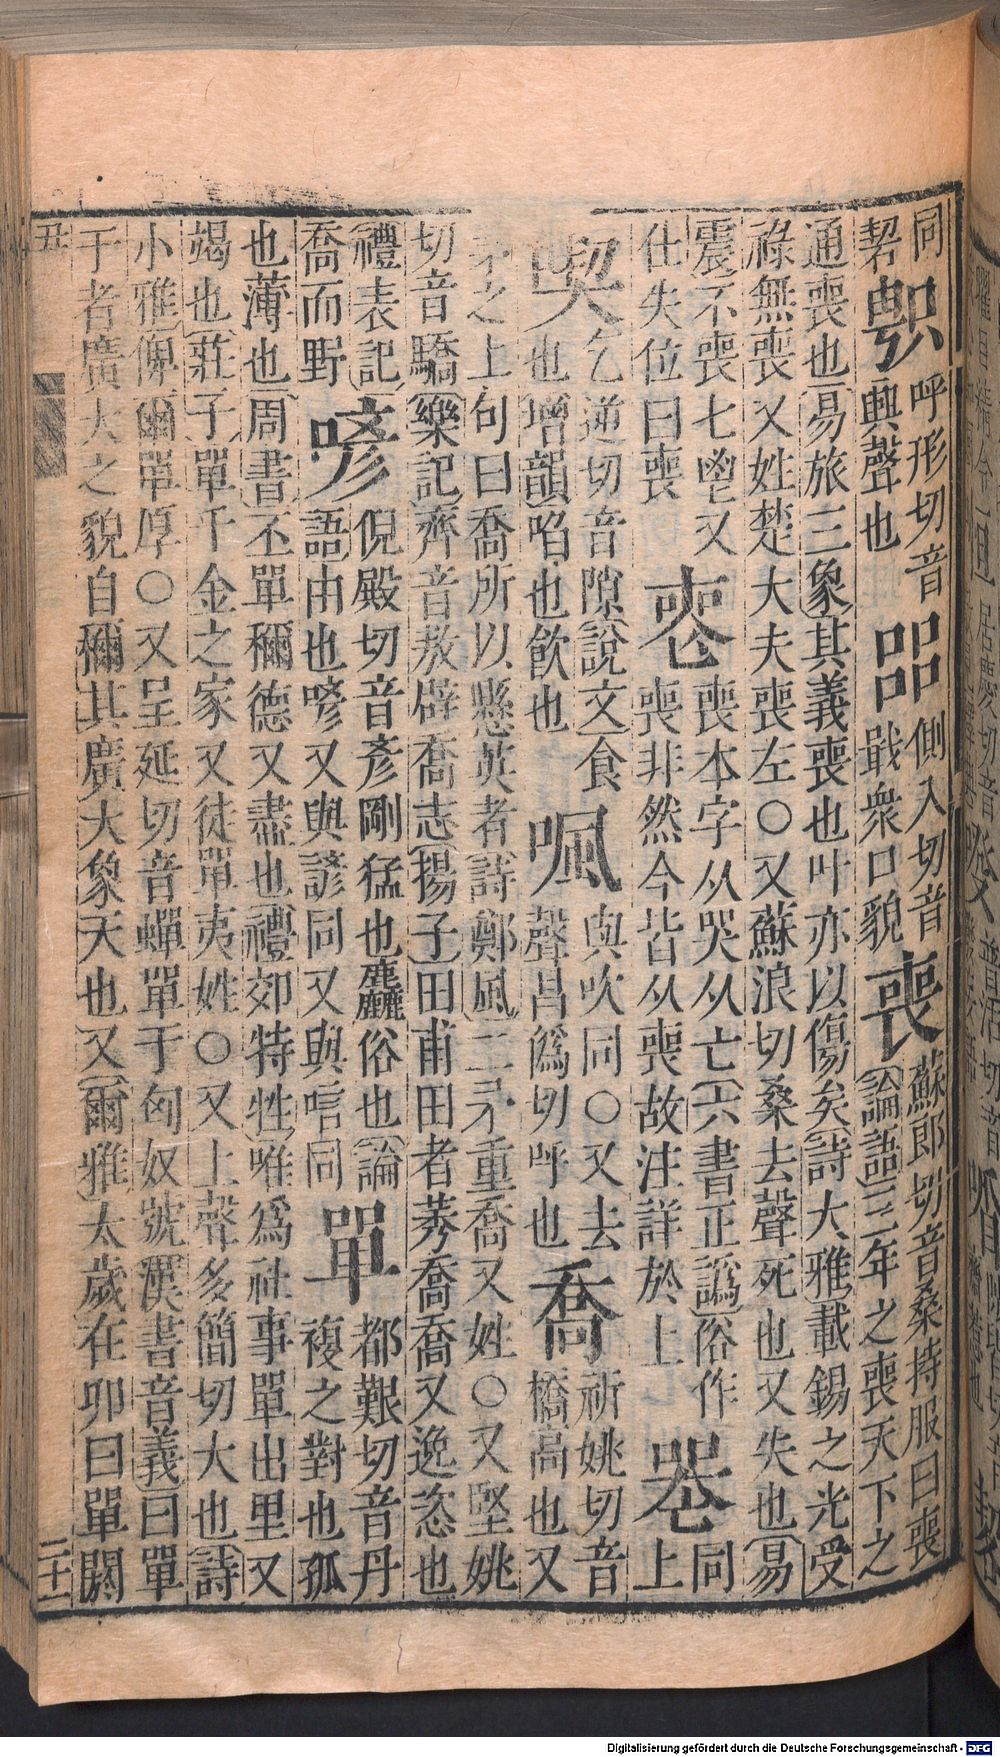 同
契
呼形切音
興聲也
㗊
側入切音
戢衆口貌
喪
蘇郎切音桑持服曰喪
論語三年之喪天下之
通喪也易旅三象其義喪也叶亦以傷矣詩大雅載錫之光受
祿無喪又姓楚大夫喪左○又蘇浪切桑去聲死也又失也易
震不喪七鬯又
仕失位曰喪
喪本字从哭从亡六書正譌俗作
喪非然今皆从喪故注詳於上
同
上
喫
乞逆切音隙說文食
也增韻啗也飲也
與吹同○又去
聲昌僞切呼也
喬
祈姚切音
橋高也又
矛之上句曰喬所以懸英者詩鄭風二矛重喬又姓○又堅姚
切音驕樂記齊音敖辟喬志揚子田甫田者莠喬喬又逸恣也
禮表記
喬而野
喭
倪殿切音彥剛猛也麤俗也論
語由也喭又與諺同又與唁同
單
都艱切音丹
複之對也孤
也薄也周書丕單稱德又盡也禮郊特牲唯爲社事單出里又
竭也莊子單千金之家又徒單夷姓○又上聲多簡切大也詩
小雅俾爾單厚○又呈延切音蟬單于匈奴號漢書音義曰單
于者廣大之貌自稱其廣大象天也又爾雅太歲在卯曰單閼
丑
二十一
Digitalisierung gefördert durch die Deutsche Forschungsgemeinschaft - DFG